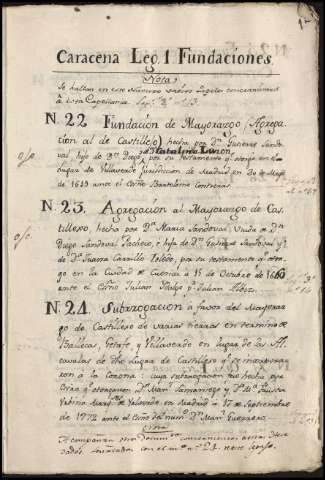 Caracena Leg. 1 Fundaciones.
Nota
Se hallan en este Numero varios Papeles concernientes
à esta Capellania
N. 22 Fundación de Mayorazgo (Agrega-
cion al de Castillejo) hecha por Dn. Gutierre Sando-
val, hijo de Dn. Diego y Catalina Leonor, por su testamento q. otorgó en el
Lugar de Villaverde jurisdiccion de Madrid en 30 de Mayo
de 1613 ante el Escno. Bartolome Contreras.
N. 23. Agregacion al Mayorazgo de Cas-
tillexo, hecha por Da. Maria Sandoval Viuda de Dn.
Diego Sandoval Pacheco, e hija de Dn. Gutierre Sandoval y
de Da. Juana Carrillo Toledo, por su testamento q. otor-
gó en la Ciudad de Cuenca à 15 de Octubre de 1660
ante el Escno. Julian
N. 24. Subrrogacion a favor del Mayoraz-
go de Castillejo de varias tierras en termino de
Ballecas, Getafe, y Villaverde en lugar de las Al-
cavalas de dho Lugar de Castillejo q. se incorpora-
ron a la Corona: cuya subrrogacion fue hecha por
Escra. q. otorgaron Dn. Man. Samaniego y Da.
Marqs. de Valverde en Madrid à 17 de Septiembre
de 1772 ante el Escno. del num. Dn. Man. Guerrero.
Nota
Acompañan
dados, con el n. 24.